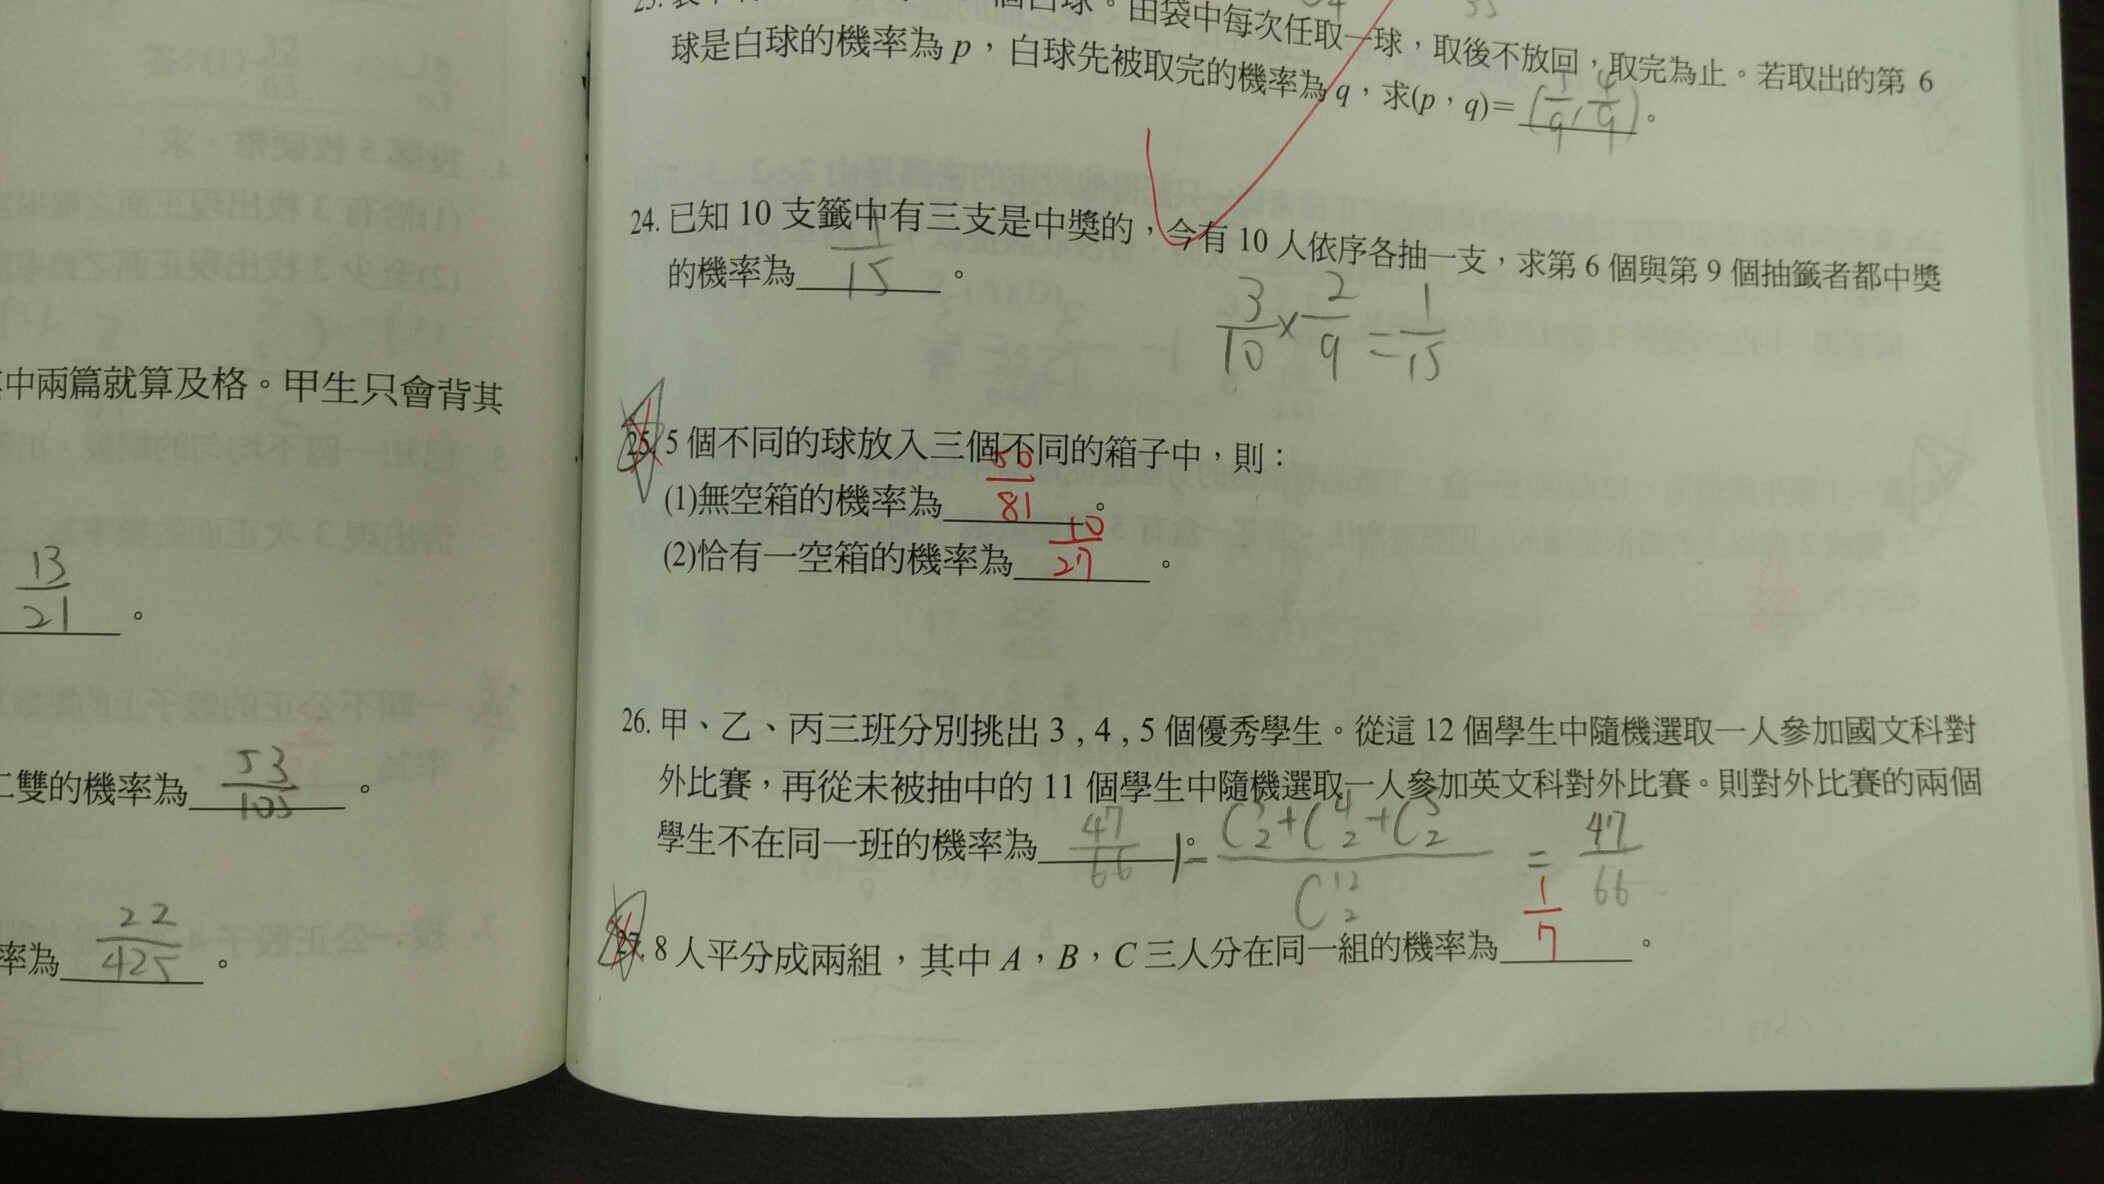 個白球。由袋中每次任取一球，取後不放回，取完為止。若取出的第 6
球是白球的機率為 p，白球先被取完的機率為 q，求(p，q)=
24. 已知 10 支籤中有三支是中獎的，今有 10 人依序各抽一支，求第 6 個與第 9 個抽籤者都中獎
的機率為 1/15 。
3/10 × 2/9 = 1/15
25. 5 個不同的球放入三個不同的箱子中，則：
(1)無空箱的機率為 50/81 。
(2)恰有一空箱的機率為 10/27 。
26. 甲、乙、丙三班分別挑出 3 , 4 , 5 個優秀學生。從這 12 個學生中隨機選取一人參加國文科對
外比賽，再從未被抽中的 11 個學生中隨機選取一人參加英文科對外比賽。則對外比賽的兩個
學生不在同一班的機率為 47/66 。
= 47/66
27. 8 人平分成兩組，其中 A，B，C 三人分在同一組的機率為 1/7 。
中兩篇就算及格。甲生只會背其
13/21 。
二雙的機率為 53/105 。
率為 22/425 。